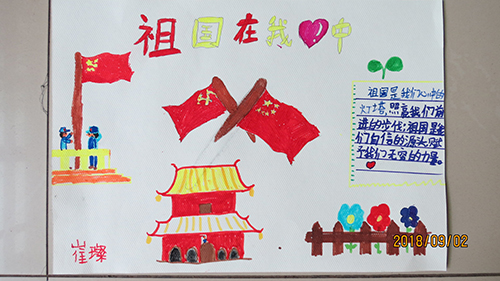 祖国在我❤中
祖国是我们心中的
灯塔,照亮我们前
进的步伐;祖国是我
们自信的源头,赋
予我们无穷的力量。
崔璨
2018/09/02